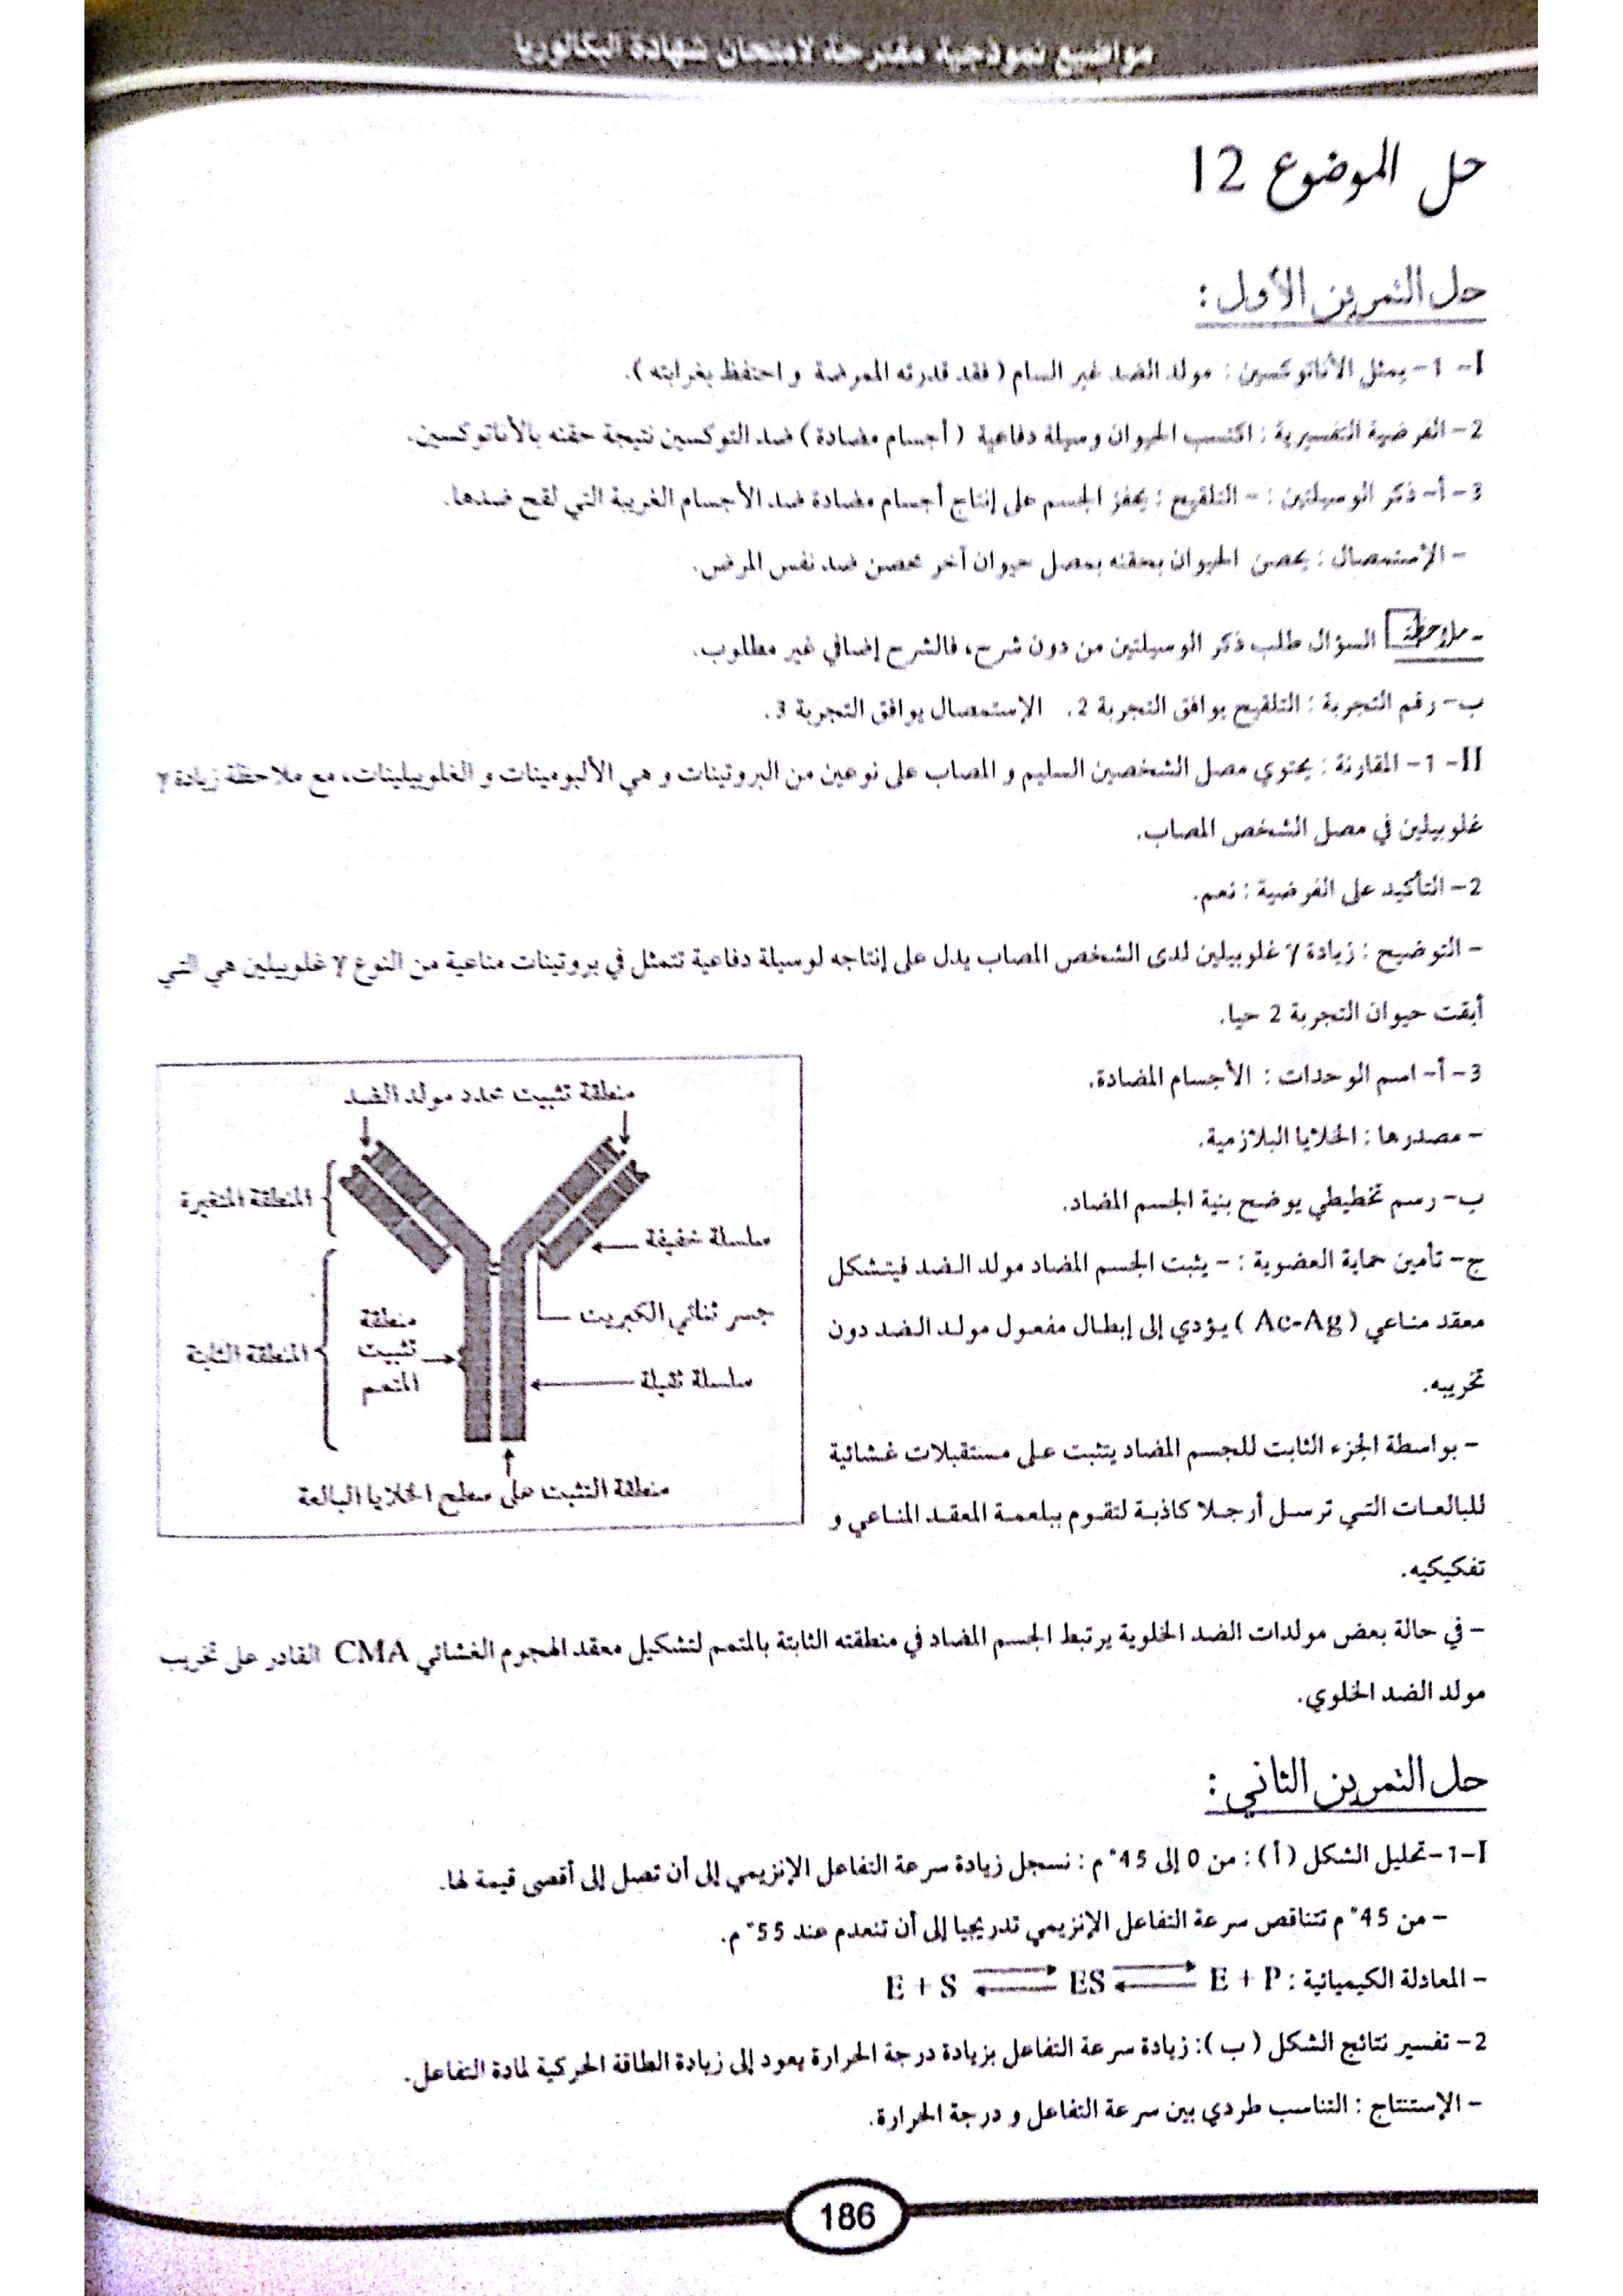 مواضيع نموذجية مقترحة لامتحان شهادة البكالوريا
حل الموضوع 12
حل التمرين الأول :
I- 1- يمثل الأناتوكسين : مولد الضد غير السام ( فقد قدرته الممرضة و احتفظ بغرابته ).
2- الفرضية التفسيرية : اكتسب الحيوان وسيلة دفاعية ( أجسام مضادة ) ضد التوكسين نتيجة حقنه بالأناتوكسين.
3- أ- ذكر الوسيلتين : - التلقيح : يحفز الجسم على إنتاج أجسام مضادة ضد الأجسام الغريبة التي لقح ضدها.
- الإستمصال : يحصن الحيوان بحقنه بمصل حيوان آخر محصن ضد نفس المرض.
- ملاحظة السؤال طلب ذكر الوسيلتين من دون شرح، فالشرح إضافي غير مطلوب.
ب- رقم التجربة : التلقيح يوافق التجربة 2. الإستمصال يوافق التجربة 3.
II- 1- المقارنة : يحتوي مصل الشخصين السليم و المصاب على نوعين من البروتينات و هي الألبومينات و الغلوبيلينات، مع ملاحظة زيادة γ
غلوبيلين في مصل الشخص المصاب.
2- التأكيد على الفرضية : نعم.
- التوضيح : زيادة γ غلوبيلين لدى الشخص المصاب يدل على إنتاجه لوسيلة دفاعية تتمثل في بروتينات مناعية من النوع γ غلوبيلين هي التي
أبقت حيوان التجربة 2 حيا.
3- أ- اسم الوحدات : الأجسام المضادة.
- مصدرها : الخلايا البلازمية.
ب- رسم تخطيطي يوضح بنية الجسم المضاد.
ج- تأمين حماية العضوية : - يثبت الجسم المضاد مولد الضد فيتشكل
معقد مناعي ( Ac-Ag ) يؤدي إلى إبطال مفعول مولد الضد دون
تخريبه.
- بواسطة الجزء الثابت للجسم المضاد يتثبت على مستقبلات غشائية
للبالعات التي ترسل أرجلا كاذبة لتقوم ببلعمة المعقد المناعي و
تفكيكيه.
منطقة تثبيت محدد مولد الضد
المنطقة المتغيرة
سلسلة خفيفة
جسر ثنائي الكبريت
منطقة
تثبيت
المتمم
المنطقة الثابتة
سلسلة ثقيلة
منطقة التثبت على سطح الخلايا البالعة
- في حالة بعض مولدات الضد الخلوية يرتبط الجسم المضاد في منطقته الثابتة بالمتمم لتشكيل معقد الهجوم الغشائي CMA القادر على تخريب
مولد الضد الخلوي.
حل التمرين الثاني :
I-1- تحليل الشكل ( أ ) : من 0 إلى 45°م : نسجل زيادة سرعة التفاعل الإنزيمي إلى أن تصل إلى أقصى قيمة لها.
- من 45°م تتناقص سرعة التفاعل الإنزيمي تدريجيا إلى أن تنعدم عند 55°م.
- المعادلة الكيميائية : E + S ⇄ ES ⇄ E + P
2- تفسير نتائج الشكل ( ب ): زيادة سرعة التفاعل بزيادة درجة الحرارة يعود إلى زيادة الطاقة الحركية لمادة التفاعل.
- الإستنتاج : التناسب طردي بين سرعة التفاعل و درجة الحرارة.
186